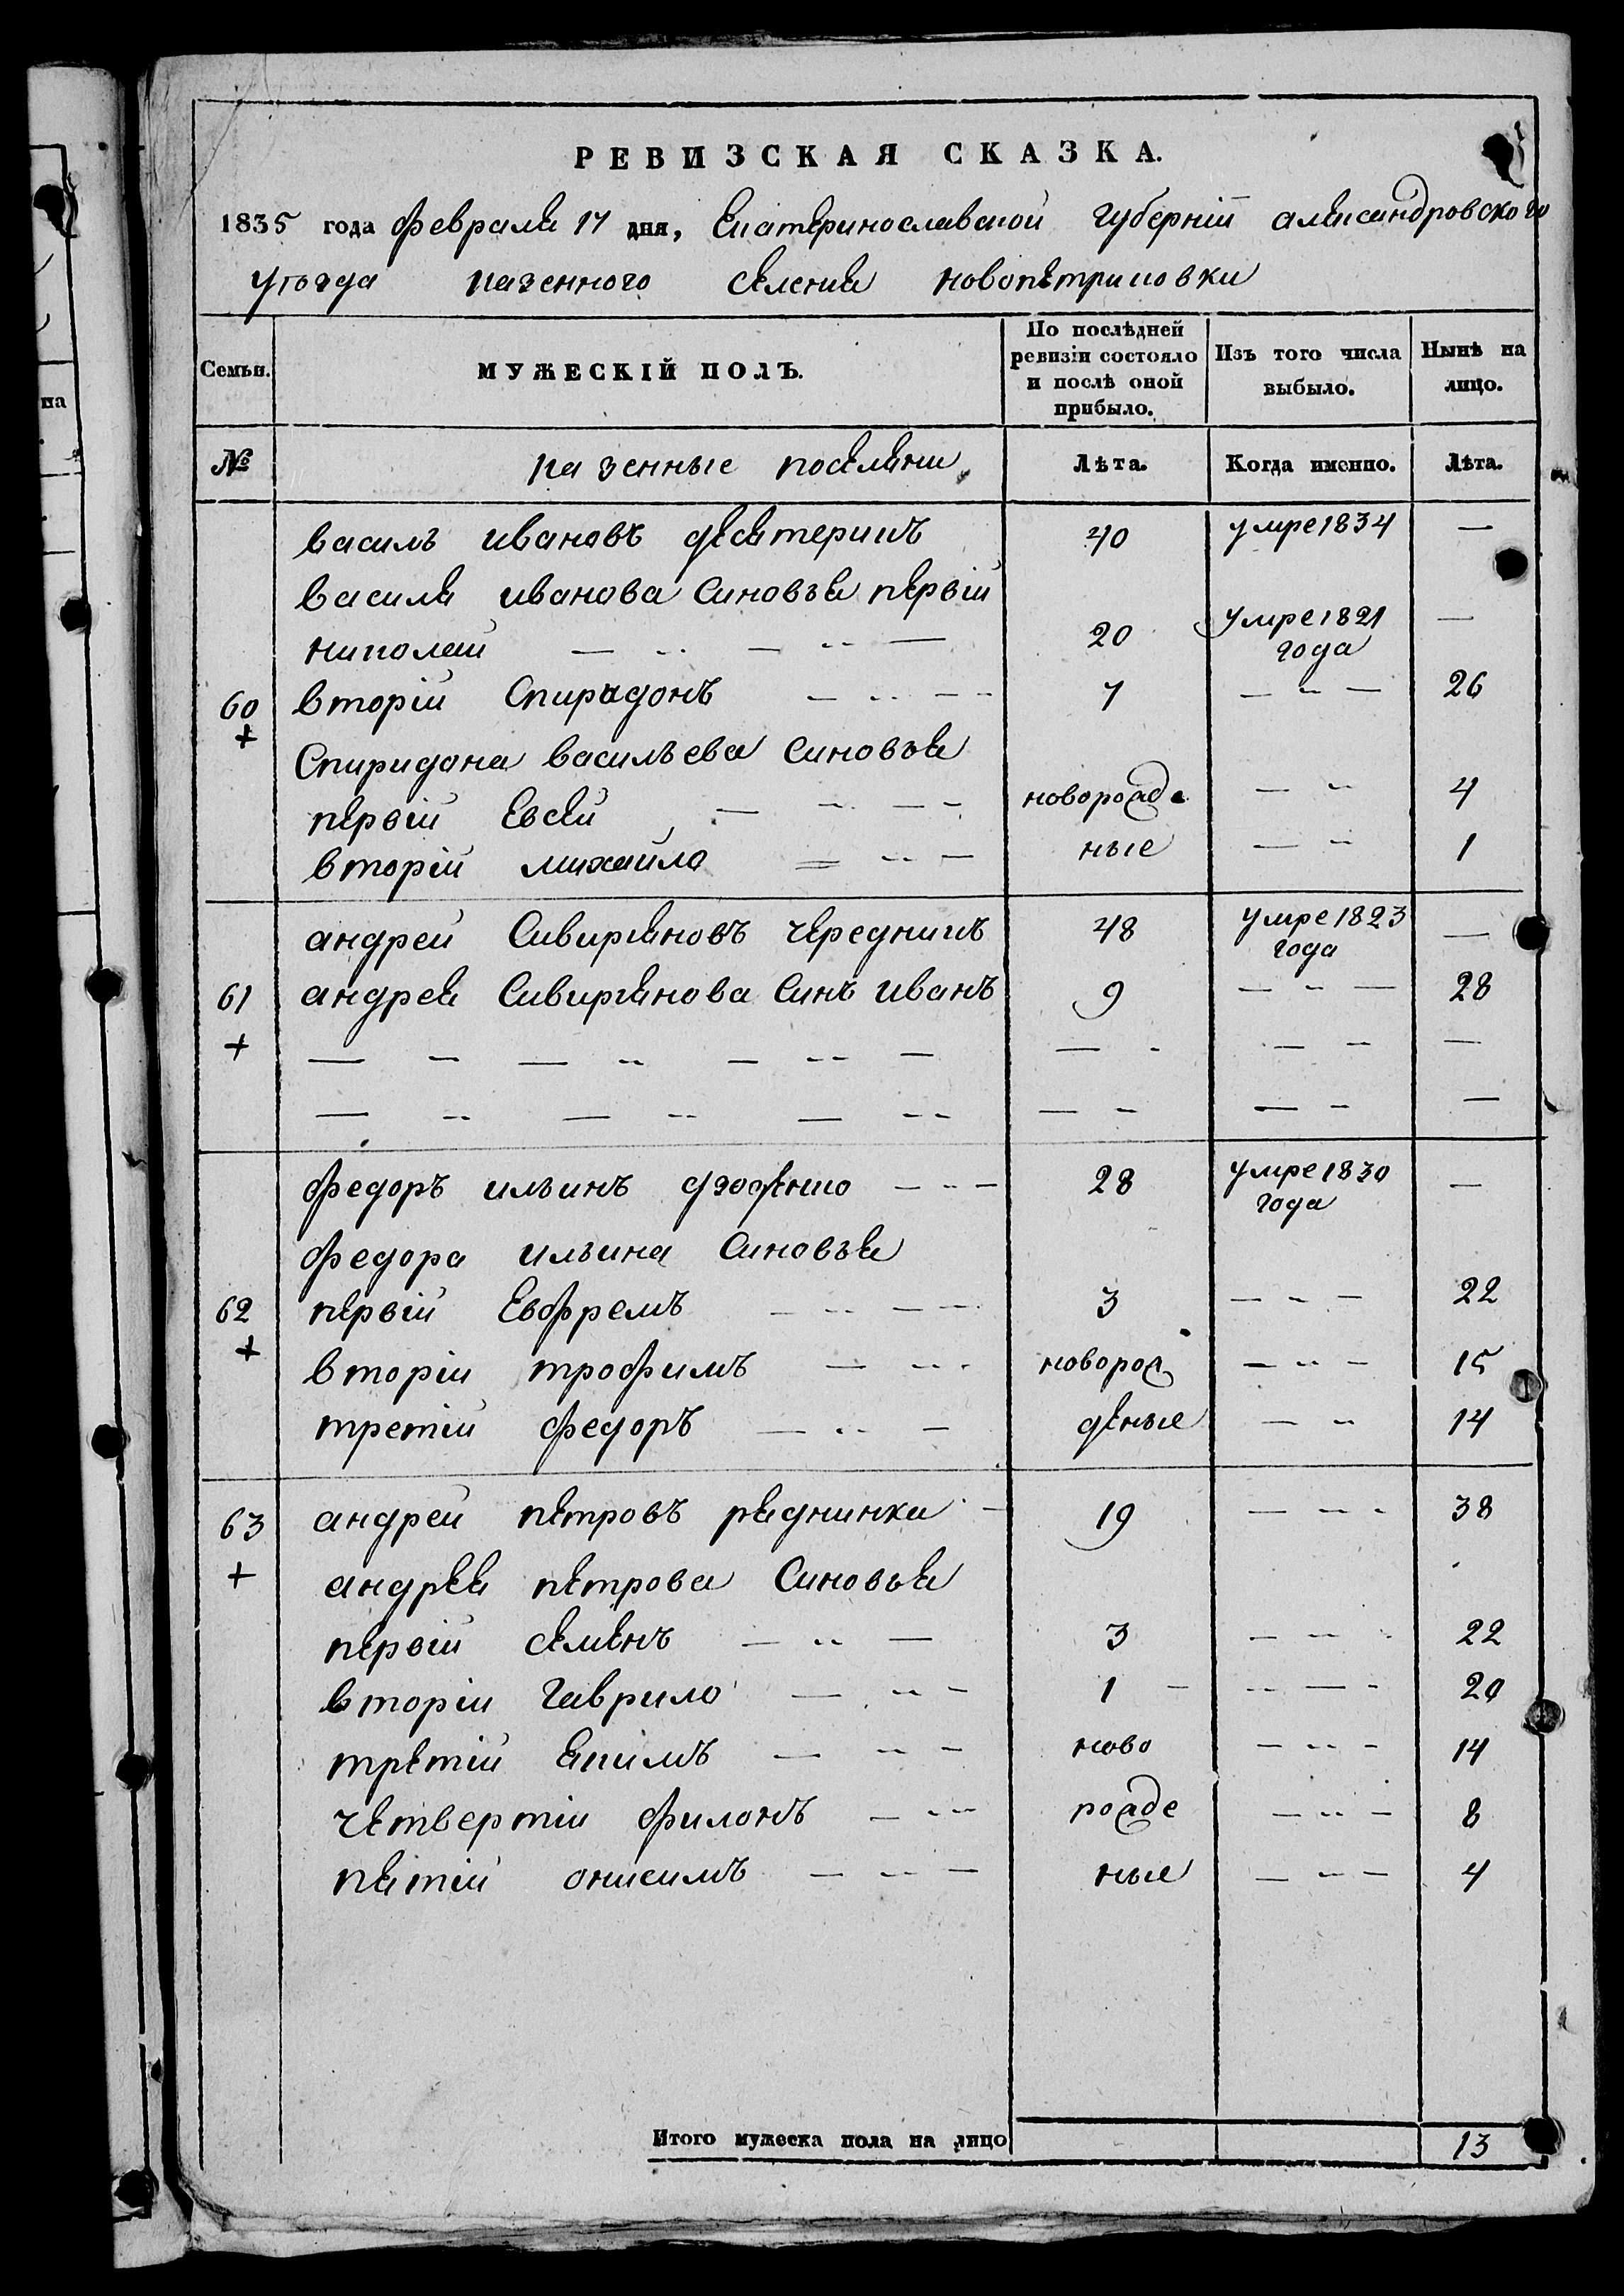 РЕВИЗСКАЯ СКАЗКА.
1835 года февраля 17 дня, Екатеринославской губерніи александровского
уѣзда казенного селения новопетриковки
Семьи. МУЖЕСКІЙ ПОЛЪ. По послѣдней ревизіи состояло и послѣ оной прибыло. Изъ того числа выбыло. Нынѣ на лицо.
№ казенные поселяни Лѣта. Когда именно. Лѣта.
василь ивановъ десятерикъ 40 умре 1834 —
василя иванова синовья первій
николай 20 умре 1821 года —
60 вторій Спиридонъ 7 26
Спиридона васильева синовья
первій Евсей новорожде 4
вторій михайло ные 1
андрей Сивирияновъ чередникъ 48 умре 1823 года —
61 андрея Сивириянова синъ иванъ 9 28
федоръ ильинъ 28 умре 1830 года —
федора ильина синовья
62 первій Евфремъ 3 22
вторій трофимъ новорож 15
третій федоръ деные 14
63 андрей петровъ редкинки 19 38
андрея петрова синовья
первій семенъ 3 22
вторій гаврило 1 20
третій екимъ ново 14
четвертій филонъ рожде 8
пятій онисимъ ные 4
Итого мужеска пола на лицо 13
на